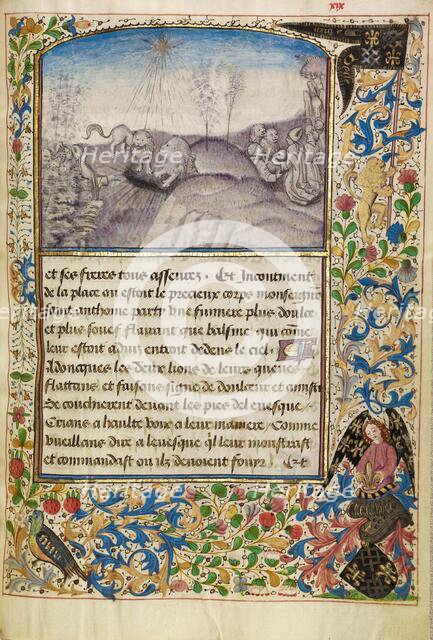 xix
et ses freres tous asseurez. Et Incontinent
de la place ou estoit le precieux corps monseigneur
saint anthome partit Une fumiere plus doulce
et plus souef flairant que balsme, qui comme
leur estoit aduis entroit dedens le ciel.
Adoncques les deux lions de leurs queues
flattans et faisans signe de doulceur et
se coucherent deuant les pies del euesque
Crians a haulte voix a leur maniere Comme
vueillans dire a leuesque ql leur monstrast
et commandast ou ilz deuoient fouyr. Et
Heritage
Heritage
Heritage
Heritage